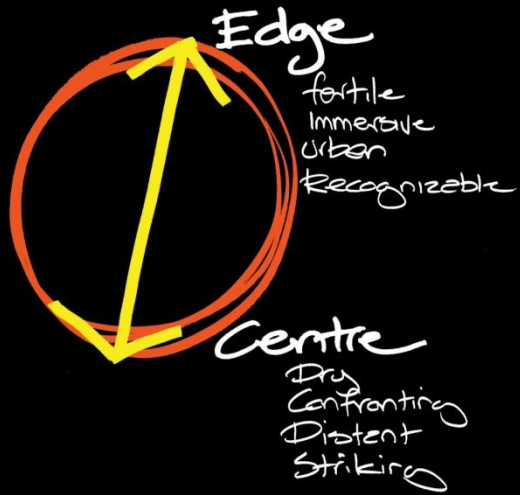 Edge
fertile
Immersive
urban
Recognizable
Centre
Dry
Confronting
Distant
Striking